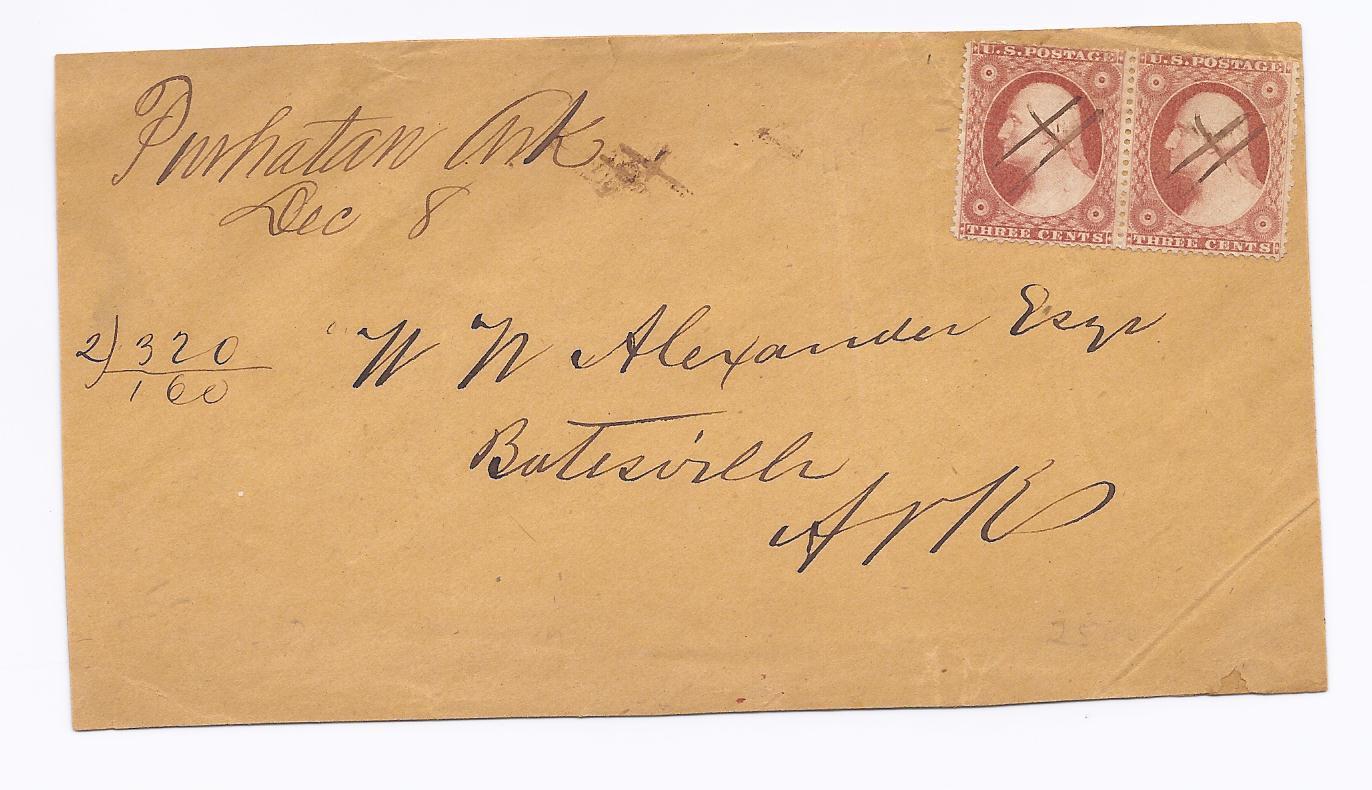 U.S. POSTAGE U.S. POSTAGE
THREE CENTS THREE CENTS
Powhatan Ark
Dec 8
2) 320
160
W W Alexander Esqr
Batesville
Ark